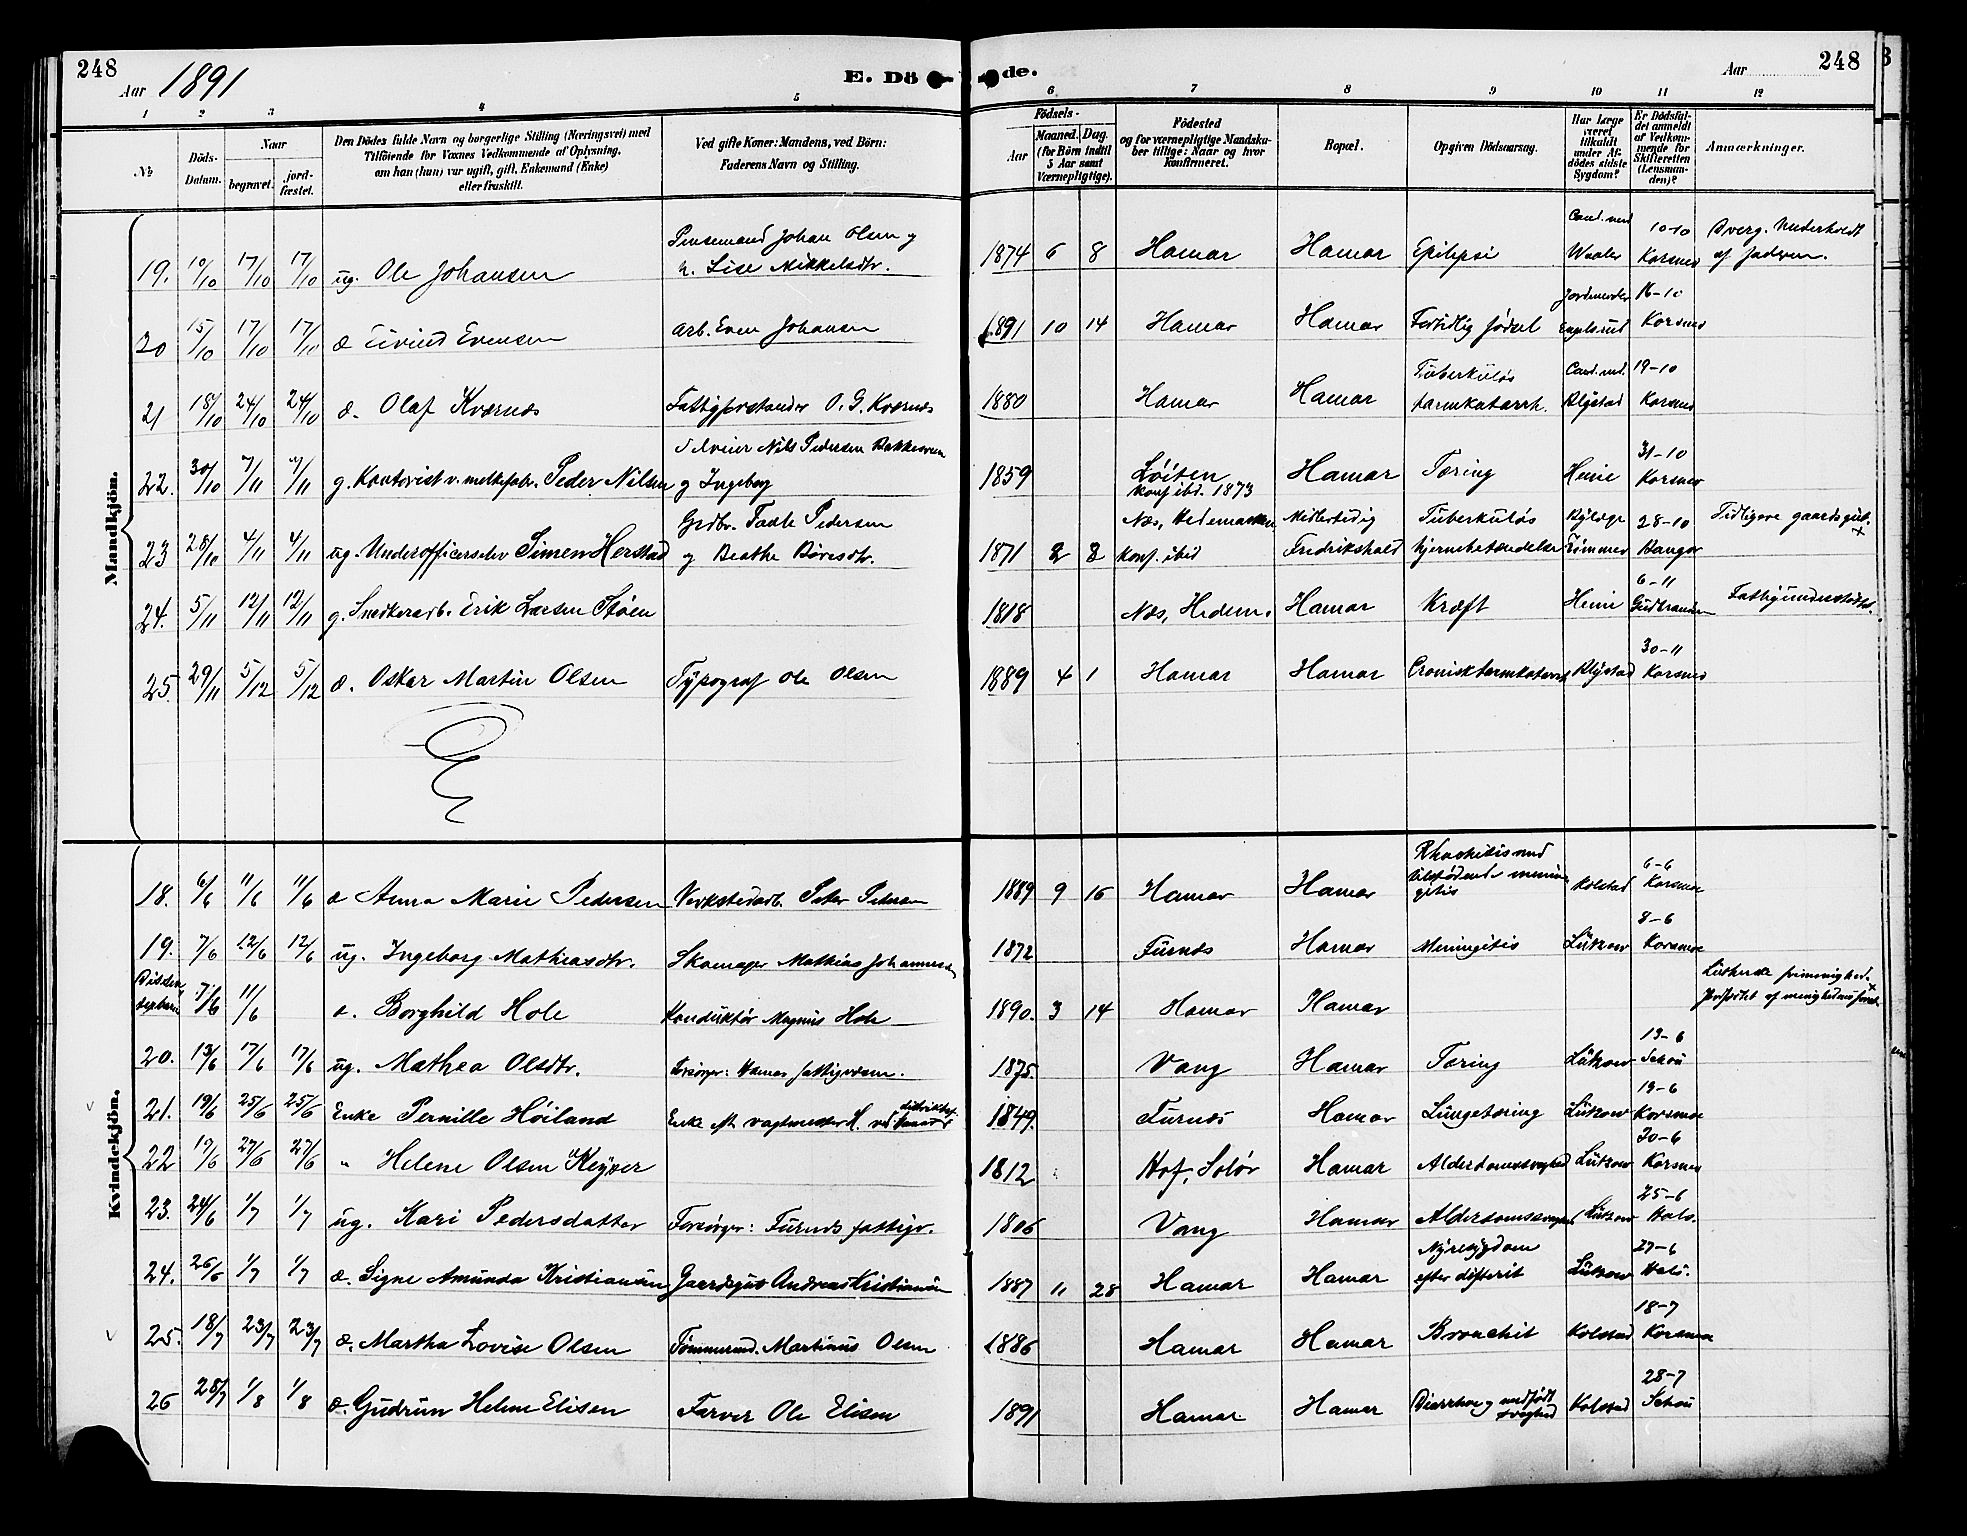 248
Aar 1891
E. Dö
de.
Aar 248
1 2 3 4 5 6 7 8 9 10 11 12
No
Döds-Datum.
Naar
begravet.
jord-fæstet.
Den Dödes fulde Navn og borgerlige Stilling (Næringsvei) med
Tilföiende for Voxnes Vedkommende af Oplysning,
om han (hun) var ugift, gift, Enkemand (Enke)
eller fraskilt.
Ved gifte Koner: Mandens, ved Börn:
Faderens Navn og Stilling.
Födsels-
Aar
Maaned. Dag.
(for Börn indtil
5 Aar samt
Værnepligtige).
Födested
og for værnepligtige Mandskaber tillige: Naar og hvor
Konfirmeret.
Bopæl.
Opgiven Dödsaarsag.
Har Læge
været
tilkaldt
under Afdödes sidste
Sygdom?
Er Dödsfaldet anmeldt
af Vedkommende for
Skifteretten
(Lensmanden)?
Anmærkninger.
Mandkjön.
19. 10/10 17/10 17/10 ug. Ole Johansen Johan Olsen og h. Lise Mikkelsdtr. 1874 6 8 Hamar Hamar Epilepsi Cand. med Waaler 10-10 Korsmo af faderen.
20 15/10 17/10 17/10 æ Eivind Evensen arb. Even Johansen 1891 10 14 Hamar Hamar Fortidlig fødsel Jordmoder Engelsrud 16-10 Korsmo
21 18/10 24/10 24/10 æ. Olaf Kværnes Fattigforstander O. G. Kværnes 1880 Hamar Hamar Tuberkuløs tarmkatarrh. Cand. med. Alystad 19-10 Korsmo
22. 30/10 7/11 7/11 g. Kontorist v. melkefabr. Peder Nilsen Selveier Nils Pedersen Bakkesveen og Ingeborg 1859 Løiten konf. ibd. 1873 Hamar Tæring Heine 31-10 Korsmo
23 28/10 4/11 4/11 ug. Underofficerselev Simen Herstad Grdbr. Pedersen og Beathe Børesdtr. 1871 2 8 Næs, Hedemarken konf. ibid Midlertidig Fredrikshald Tuberkuløs hjernebetændelse 28-10 Tidligere gaardsgut. x
24. 5/11 12/11 12/11 g. Snedkerarb. Erik Larsen Støen 1818 Næs, Hedem. Hamar Kræft Heine 6-11 Gudbrandsen Fattigunderstøttet.
25. 29/11 5/12 5/12 æ. Oskar Martin Olsen Typograf Ole Olsen 1889 4 1 Hamar Hamar Cronisk tarmkatarrh Alystad 30-11 Korsmo
Kvindekjön.
18. 6/6 11/6 11/6 æ Anna Marie Pedersen Verkstedarb. Peter Pedersen 1889 9 16 Hamar Hamar Rhachitis med tilstødende meningitis Kolstad 6-6 Korsmo
19. 7/6 12/6 12/6 ug. Ingeborg Mathiasdtr. Skomager Mathias Johannesen 1872 Furnæs Hamar Meningitis Lützow 8-6 Korsmo
Dissenterbarn 7/6 11/6 æ. Borghild Hole Konduktør Magnus Hole 1890. 3 14 Hamar Hamar Lutherske frimenighed. x
20. 13/6 17/6 17/6 ug. Mathea Olsdtr. Forsørger: Hamar fattigvæsen. 1875. Vang Hamar Tæring Lützow 13-6 Schou
21. 19/6 25/6 25/6 Enke Pernille Høiland Enke eft. vagtmester H. ved distriktsf. Hamar 1849. Furnæs Hamar Lungetæring Lützow 19-6 Korsmo
22 19/6 27/6 27/6 " Helene Olsen Keyser 1812 Hof, Solør Hamar Alderdomssvaghed Lützow 20-6 Korsmo
23. 24/6 1/7 1/7 ug. Kari Pedersdatter Forsørger: Furnæs fattigv. 1806 Vang Hamar Alderdomssvaghed Lützow 25-6 Hals.
24. 26/6 1/7 1/7 æ. Signe Amunda Kristiansen Gaardsgut Andreas Kristiansen 1887 11 28 Hamar Hamar Nyresygdom efter difterit Lützow 27-6 Hals.
25. 18/7 23/7 23/7 æ. Martha Lovise Olsen Tømmermd. Martinus Olsen 1886 Hamar Hamar Bronchit Kolstad 18-7 Korsmo
26 28/7 1/8 1/8 æ. Gudrun Helene Elisen Farver Ole Elisen 1891 Hamar Hamar Diarrhoe og medfødt svaghed Kolstad 28-7 Schou